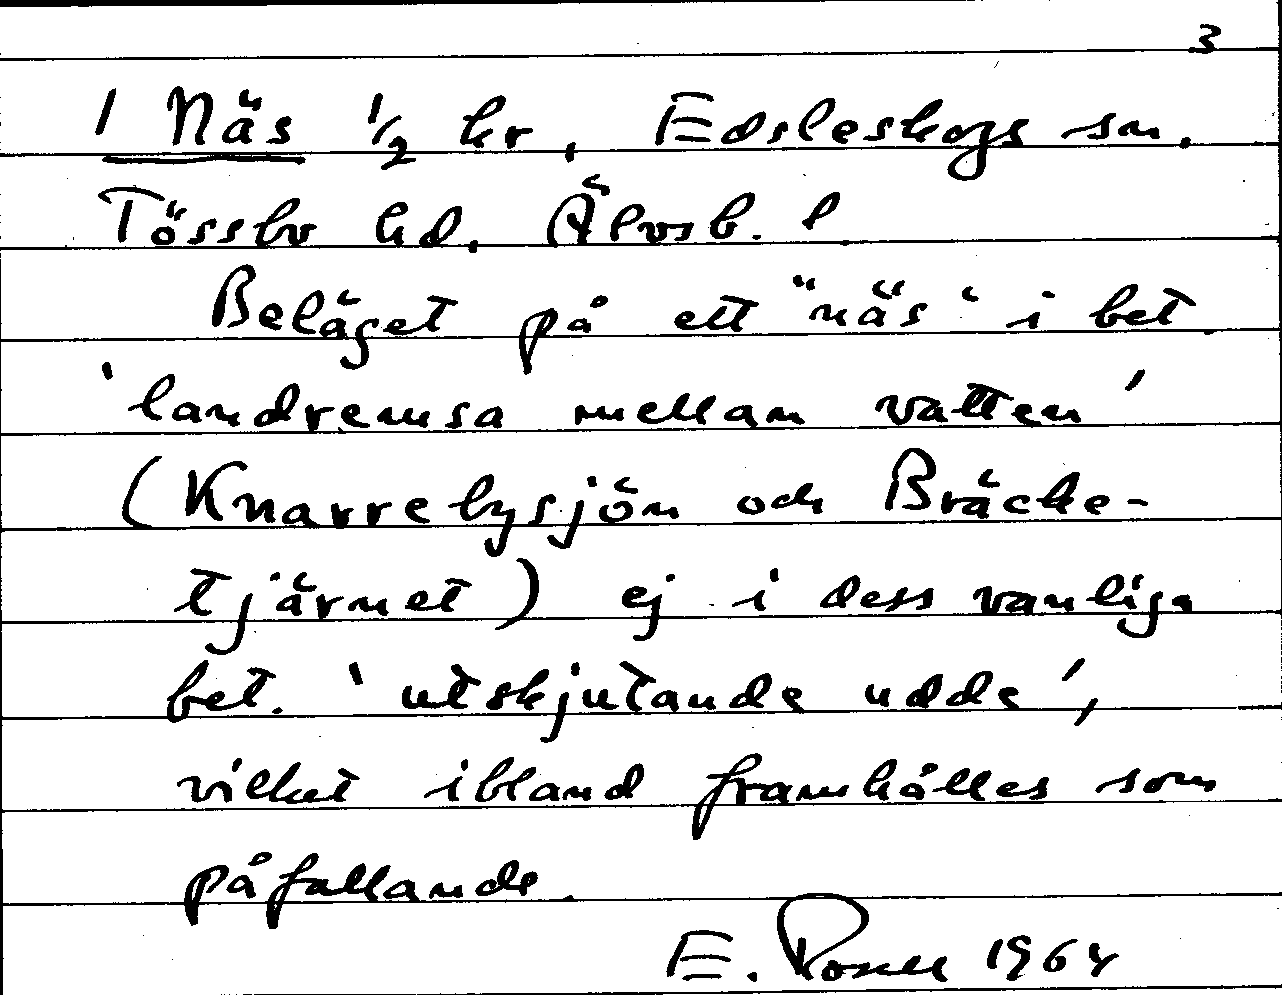 3
1 Näs 1/2 kr, Edsleskogs sn.
Tössbo hd. Älvsb. l.
Beläget på ett "näs" i bet.
'landremsa mellan vatten'
(Knarrebysjön och Bräcke-
tjärnet) ej i dess vanliga
bet. 'utskjutande udde',
vilket ibland framhålles som
påfallande.
E. Rosell 1964